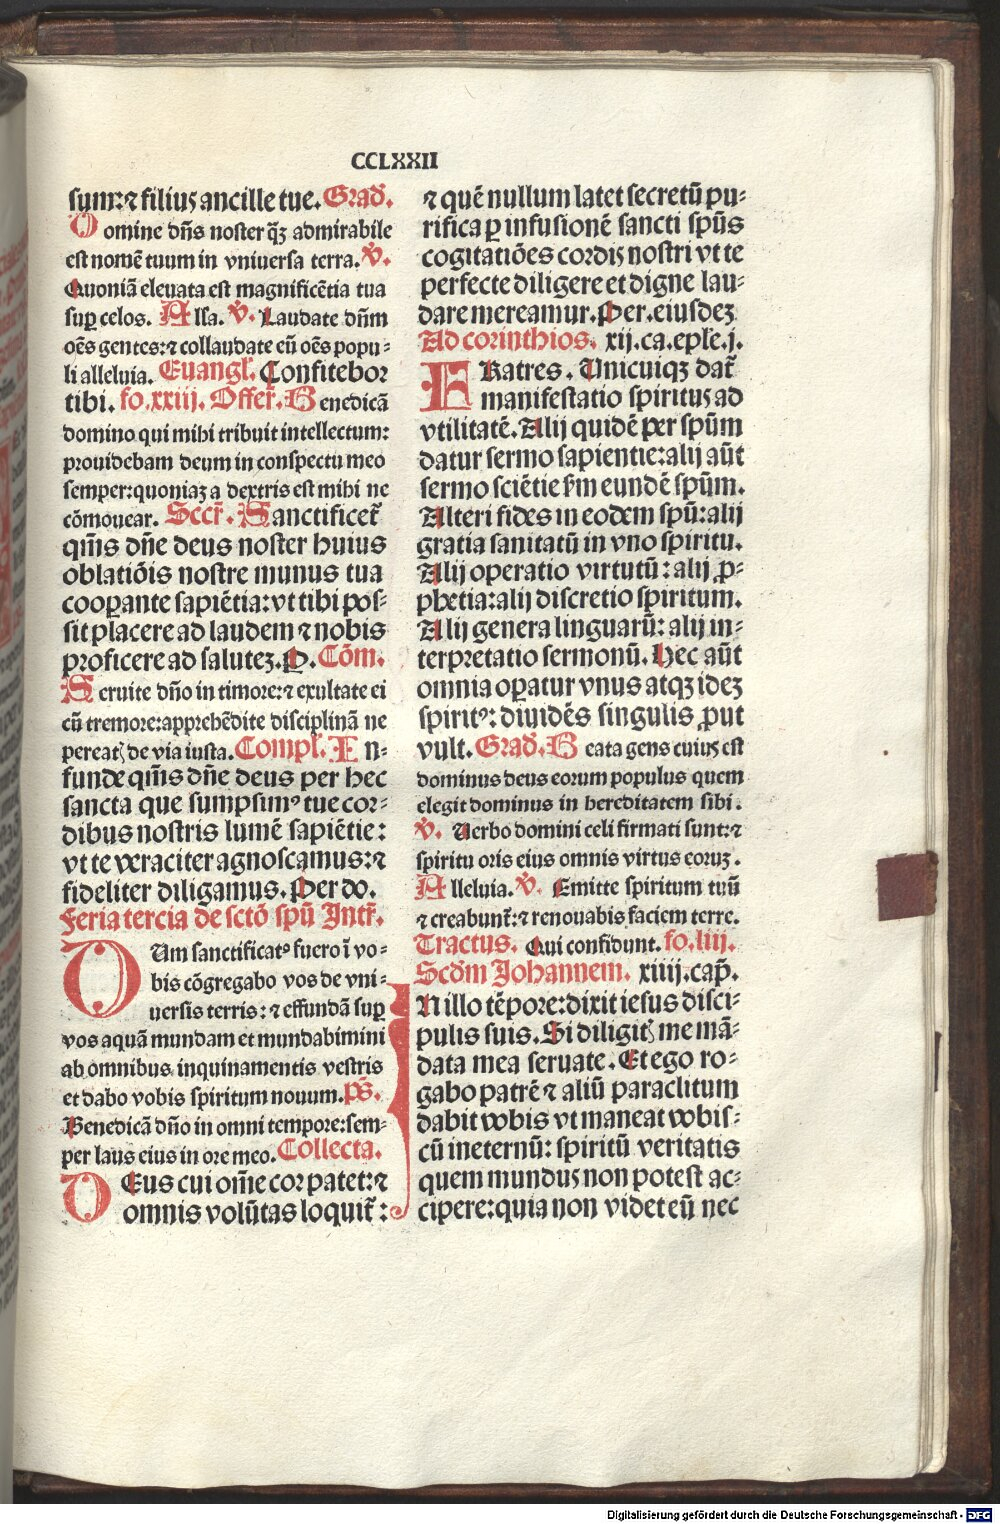 CCLXXII
sum: ⁊ filiuſ ancille tue. Grad̛.
Domine dn̄s noster qͥꝫ admirabile
est nomē tuum in vniuersa terra. V̛.
Quoniā eleuata est magnificētia tua
suꝑ celos. Alla. V̛. Laudate dn̄m
oēs gentes: ⁊ collaudate eū oēs popu-
li alleluia. Euangł. Confitebor
tibi. fo.xxiij. Offer̄. Benedicā
domino qui mihi tribuit intellectum:
prouidebam deum in conspectu meo
semper: quoniaꝫ a dextris est mihi ne
cōmouear. Secr̄. Sanctificet᷑
qm̄s dn̄e deus noster huius
oblatiōis nostre munus tua
cooꝑante sapiētia: vt tibi pos-
sit placere ad laudem ⁊ nobis
proficere ad saluteꝫ. P. Cōm.
Seruite dn̄o in timore: ⁊ exultate ei
cū tremore: apprehēdite disciplinā ne
pereatꝭ de via iusta. Compł. In-
funde qm̄s dn̄e deus per hec
sancta que sumpsimꝰ tue cor-
dibus nostris lumē sapiētie:
vt te veraciter agnoscamus: ⁊
fideliter diligamus. Per do.
Feria tercia de sctō spū Intr̄.
Dum sanctificatꝰ fuero ī vo-
bis cōgregabo vos de vni-
uersis terris: ⁊ effundā suꝑ
vos aquā mundam et mundabimini
ab omnibus inquinamentis vestris
et dabo vobis spiritum nouum. ps̄.
Benedicā dn̄o in omni tempore: sem-
per laus eius in ore meo. Collecta.
Deus cui om̄e cor patet: ⁊
omnis volūtas loquit᷑:
⁊ quē nullum latet secretū pu-
rifica ꝑ infusionē sancti spūs
cogitatiōes cordiſ nostri vt te
perfecte diligere et digne lau-
dare mereamur. Per. eiusdeꝫ
Ad corinthios. xij.ca.epłe.j.
Fratres. Unicuiqꝫ dat᷑
manifestatio spirituſ ad
vtilitatē. Alij quidē per spūm
datur sermo sapientie: alij aūt
sermo sciētie fm eundē spūm.
Alteri fides in eodem spū: alij
gratia sanitatū in vno spiritu.
Alij operatio virtutū: alij ꝓ-
phetia: alij discretio spirituum.
Alij genera linguarū: alij in-
terpretatio sermonū. Hec aūt
omnia oꝑatur vnus atqꝫ ideꝫ
spiritꝰ: diuidēs singulis ꝓut
vult. Grad̛. Beata gens cuiuſ est
dominus deus eorum populus quem
elegit dominus in hereditatem sibi.
V̛. Verbo domini celi firmati sunt: ⁊
spiritu oris eius omnis virtus eoruꝫ.
Alleluia. V̛. Emitte spiritum tuū
⁊ creabunt᷑: ⁊ renouabis faciem terre.
Tractus. Qui confidunt. fo.liij.
Scd̄m Johannem. xiiij.cap̄.
In illo tēpore: dixit iesus disci-
pulis suis. Si diligitꝭ me mā-
data mea seruate. Et ego ro-
gabo patrē ⁊ aliū paraclitum
dabit vobis vt maneat vobis-
cū ineternū: spiritū veritatis
quem mundus non potest ac-
cipere: quia non videt eū nec
Digitalisierung gefördert durch die Deutsche Forschungsgemeinschaft - DFG